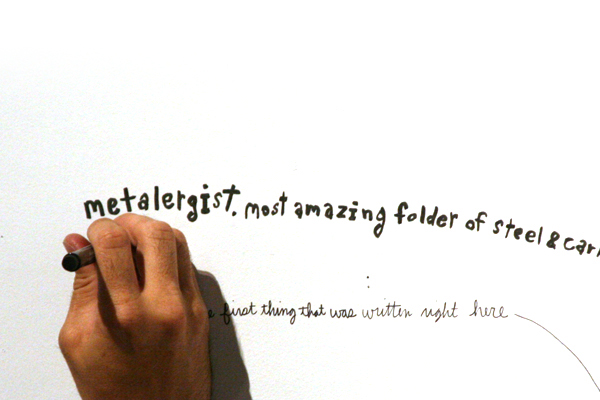 metalergist. most amazing folder of steel & car
first thing that was written right here